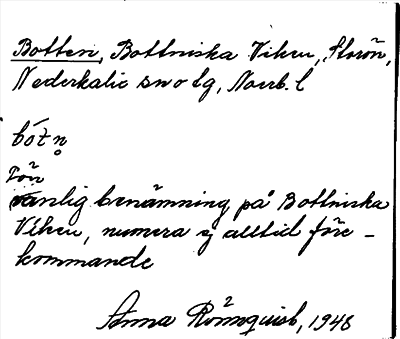 Botten, Bottniska Viken, Storön,
Nederkalix sn o tg, Norrb. l
bótn̥
vanlig benämning på Bottniska
Viken, numera ej alltid före-
kommande
Anna Rönnquist, 1948